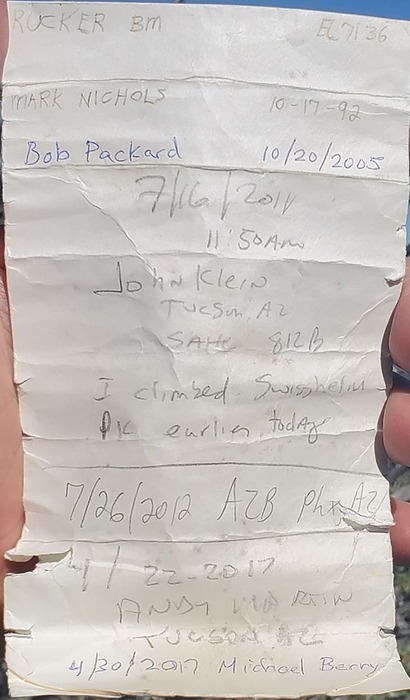 RUCKER BM EL7136
MARK NICHOLS 10-17-92
Bob Packard 10/20/2005
7/16/2011
11:50Am
John Klein
Tucson, AZ
SAHC 812B
I climbed Swisshelm
Pk earlier today
7/26/2012 AZB Phx AZ
4/22-2017
ANDY MARTIN
TUCSON AZ
4/30/2017 Michael Berry